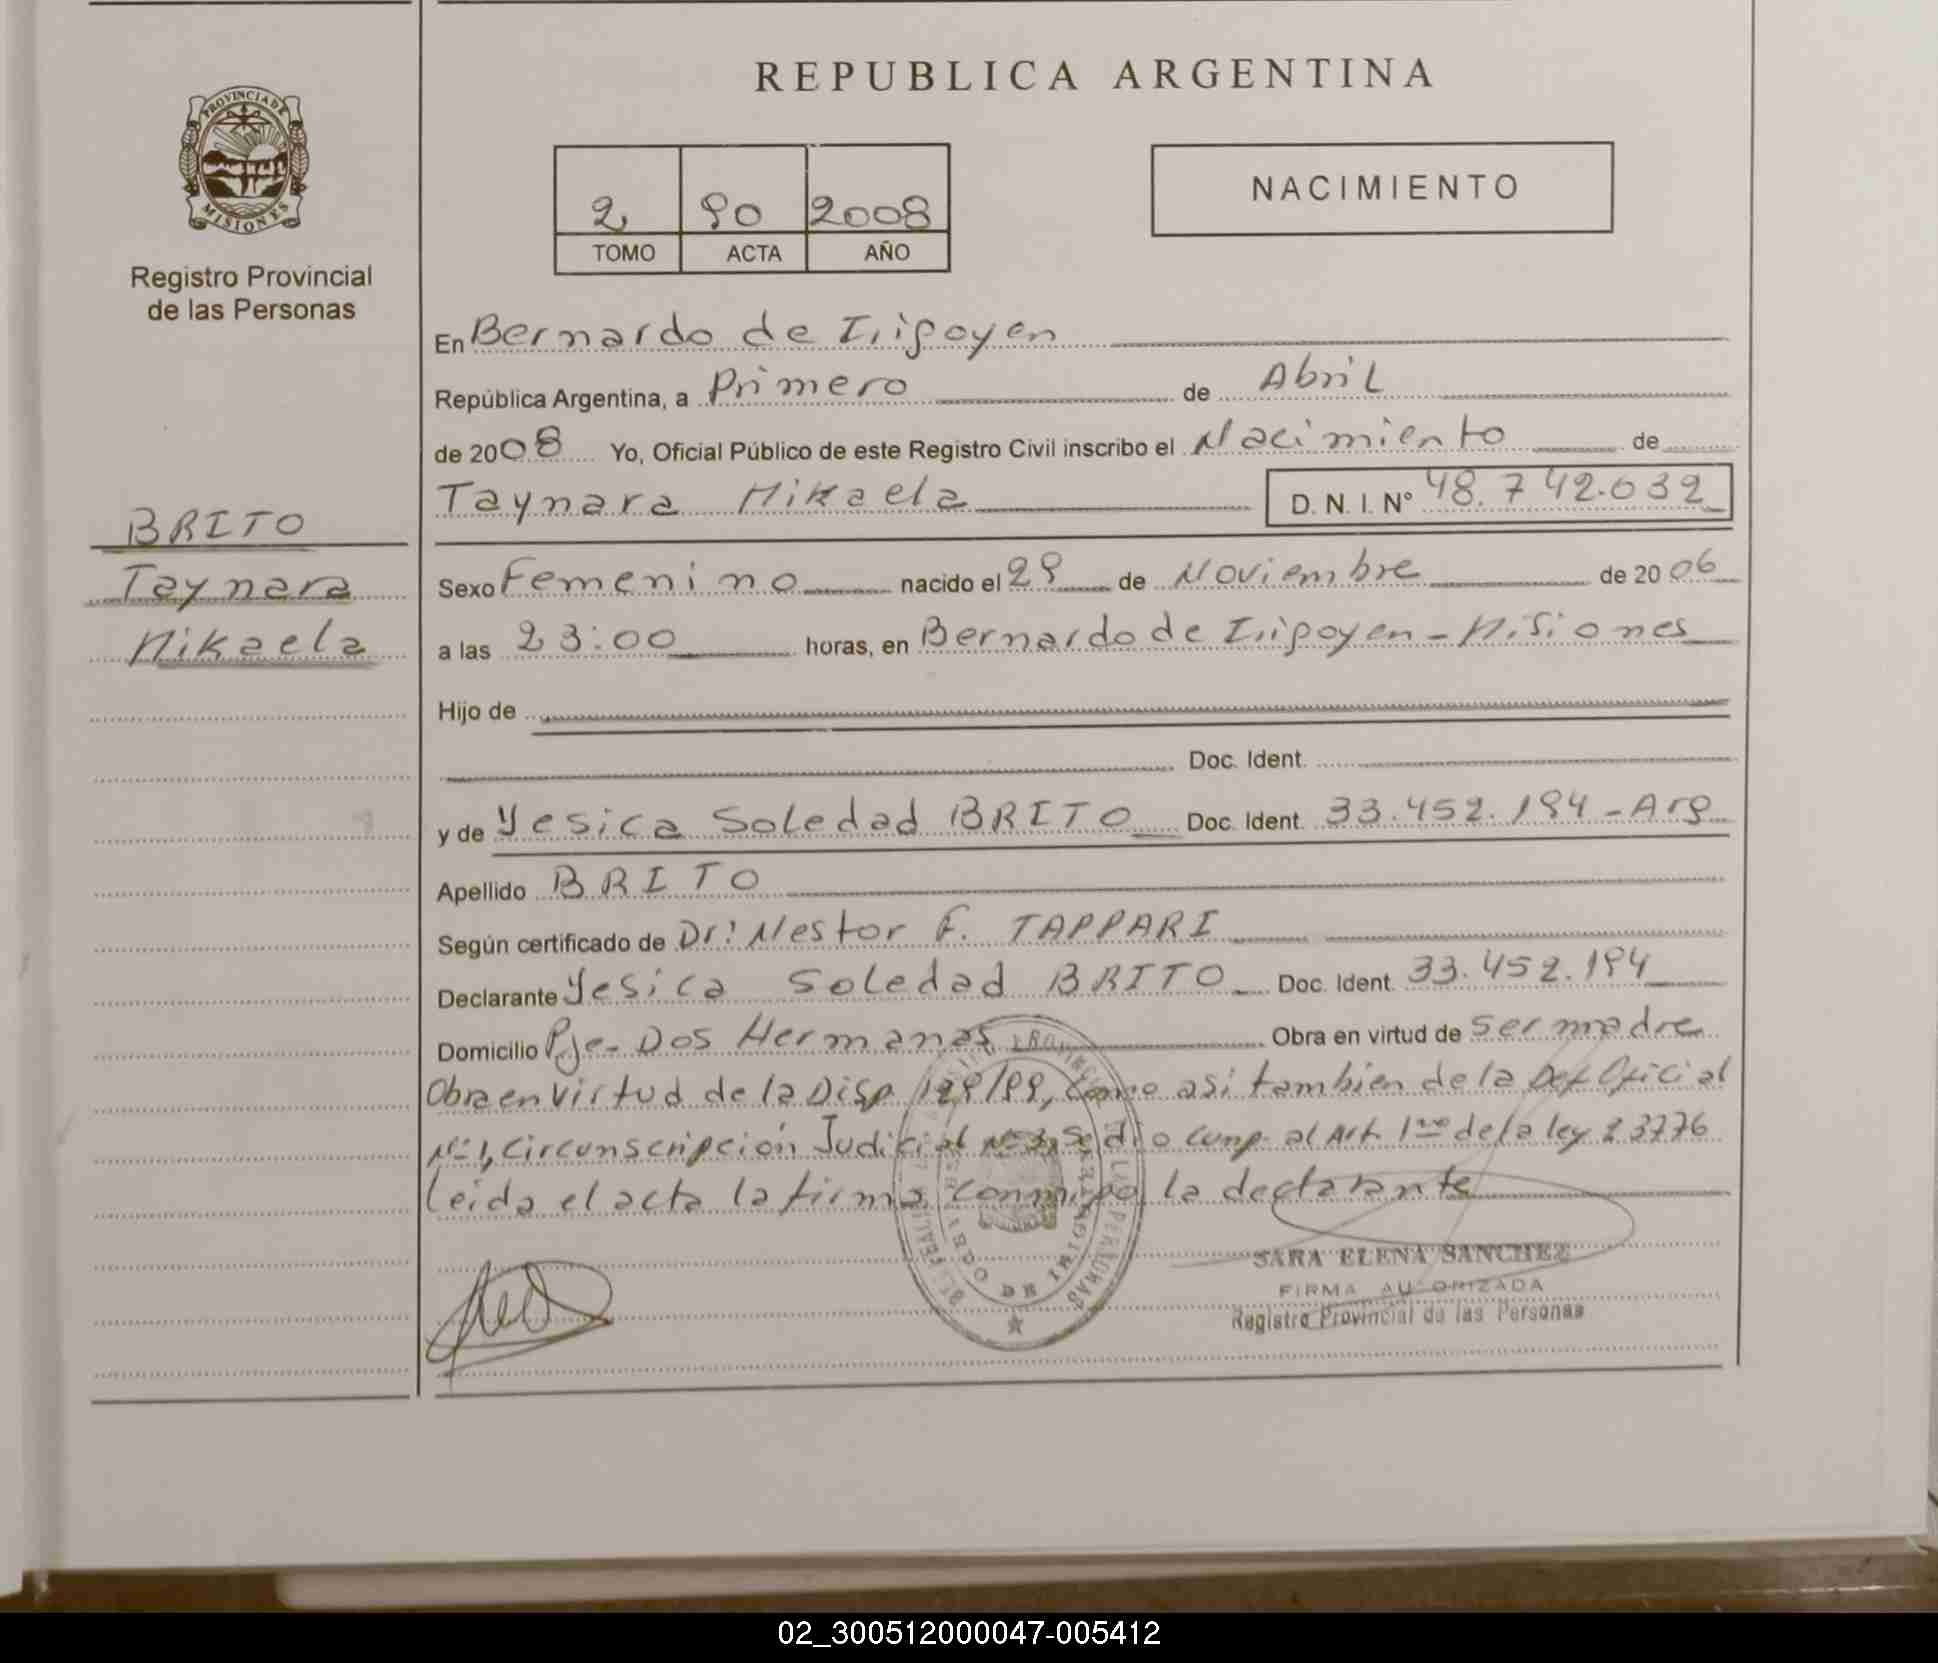 REPUBLICA ARGENTINA
PROVINCIA DE
MISIONES
Registro Provincial
de las Personas
NACIMIENTO
2 90 2008
TOMO ACTA AÑO
En Bernardo de Irigoyen
República Argentina, a Primero de Abril
de 2008 Yo, Oficial Público de este Registro Civil inscribo el Nacimiento de
Taynara Mikaela D. N. I. N° 48.742.632
BRITO
Taynara
Mikaela
Sexo Femenino nacido el 29 de Noviembre de 2006
a las 23:00 horas, en Bernardo de Irigoyen - Misiones
Hijo de
Doc. Ident.
y de Yesica Soledad BRITO Doc. Ident. 33.452.194 - Arg
Apellido BRITO
Según certificado de Dr: Nestor F. TAPPARI
Declarante Yesica Soledad BRITO Doc. Ident. 33.452.194
Domicilio Pje- Dos Hermanas Obra en virtud de ser madre
Obra en virtud de la Disp 129/99, como asi tambien de la Def Oficial
N° 1, circunscripción Judicial N° 3, Se dio cump. al Art. 1ro de la ley 23776
Leida el acta la firma conmigo la declarante
SARA ELENA SANCHEZ
FIRMA AUTORIZADA
Registro Provincial de las Personas
02_300512000047-005412